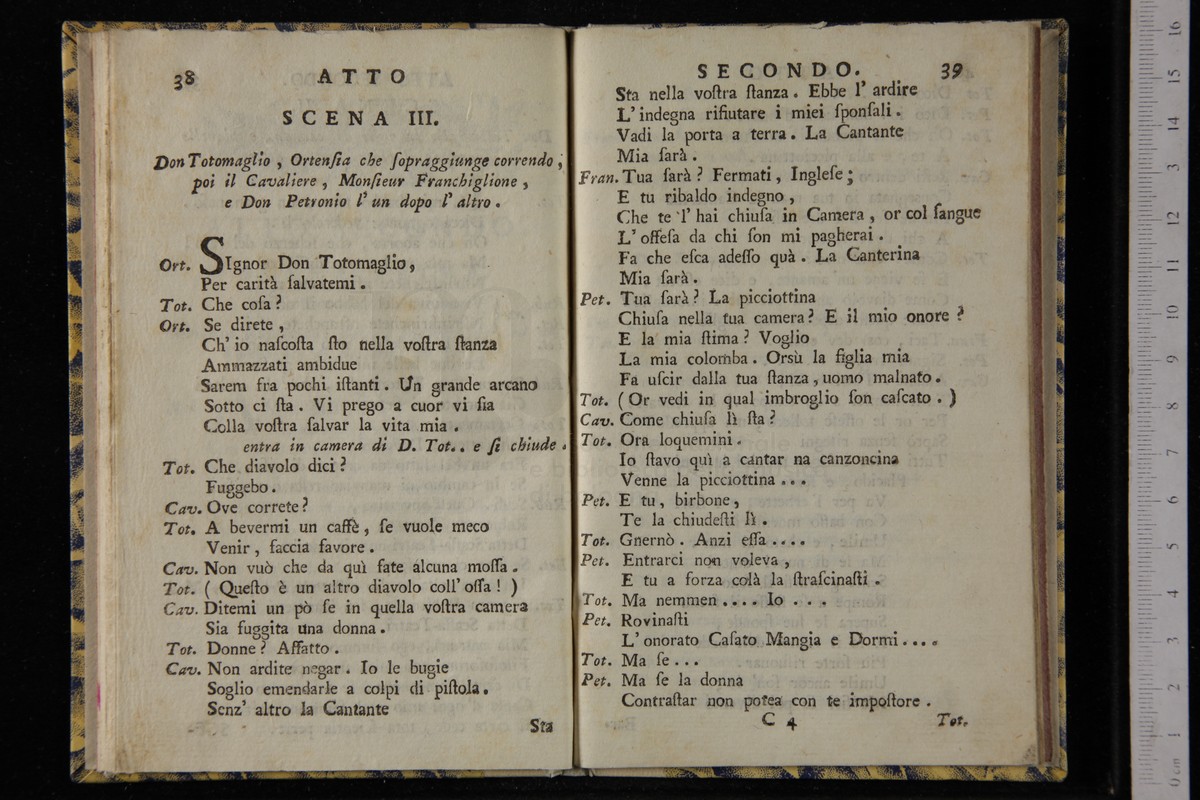 38 ATTO
SCENA III.
Don Totomaglio, Ortenſia che ſopraggiunge correndo,
poi il Cavaliere, Monſieur Franchiglione,
e Don Petronio l' un dopo l' altro.
Ort. SIgnor Don Totomaglio,
Per carità ſalvatemi.
Tot. Che coſa?
Ort. Se direte,
Ch' io naſcoſta ſto nella voſtra ſtanza
Ammazzati ambidue
Sarem fra pochi iſtanti. Un grande arcano
Sotto ci ſta. Vi prego a cuor vi ſia
Colla voſtra ſalvar la vita mia.
entra in camera di D. Tot.. e ſi chiude.
Tot. Che diavolo dici?
Fuggebo.
Cav. Ove correte?
Tot. A bevermi un caffè, ſe vuole meco
Venir, faccia favore.
Cav. Non vuò che da quì fate alcuna moſſa.
Tot. (Queſto è un altro diavolo coll' oſſa!)
Cav. Ditemi un pò ſe in quella voſtra camera
Sia fuggita una donna.
Tot. Donne? Affatto.
Cav. Non ardite negar. Io le bugie
Soglio emendarle a colpi di piſtola.
Senz' altro la Cantante
Sta
SECONDO. 39
Sta nella voſtra ſtanza. Ebbe l' ardire
L' indegna rifiutare i miei ſponſali.
Vadi la porta a terra. La Cantante
Mia ſarà.
Fran. Tua ſarà? Fermati, Ingleſe;
E tu ribaldo indegno,
Che te l' hai chiuſa in Camera, or col ſangue
L' offeſa da chi ſon mi pagherai.
Fa che eſca adeſſo quà. La Canterina
Mia ſarà.
Pet. Tua ſarà? La picciottina
Chiuſa nella tua camera? E il mio onore?
E la mia ſtima? Voglio
La mia colomba. Orsù la figlia mia
Fa uſcir dalla tua ſtanza, uomo malnato.
Tot. (Or vedi in qual imbroglio ſon caſcato.)
Cav. Come chiuſa lì ſta?
Tot. Ora loquemini.
Io ſtavo quì a cantar na canzoncina
Venne la picciottina...
Pet. E tu, birbone,
Te la chiudeſti lì.
Tot. Gnernò. Anzi eſſa....
Pet. Entrarci non voleva,
E tu a forza colà la ſtraſcinaſti.
Tot. Ma nemmen.... Io...
Pet. Rovinaſti
L' onorato Caſato Mangia e Dormi....
Tot. Ma ſe...
Pet. Ma ſe la donna
Contraſtar non potea con te impoſtore.
C 4 Tot.
16
15
14
13
12
11
10
9
8
7
6
5
4
3
2
1
0 cm